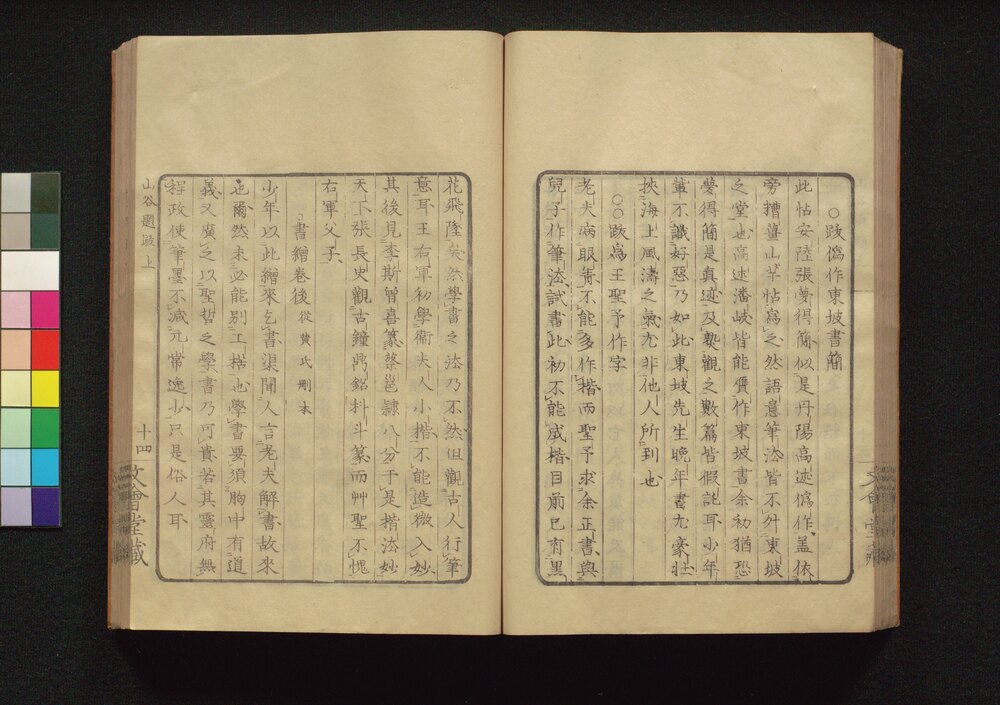 ○跋偽作東坡書簡
此帖安陸張夢得簡似是丹陽高述偽作蓋依
旁糟薑山芋帖為之然語意筆法皆不升東坡
之堂也高述潘岐皆能贋作東坡書余初猶恐
夢得簡是真迹及熟觀之數篇皆假託耳少年
輩不識好惡乃如此東坡先生晚年書尤豪壯
挾海上風濤之氣尤非他人所到也
○○跋為王聖予作字
老夫病眼眵不能多作楷而聖予求余正書與
兒子作筆法試書此初不能成楷目前已有黑
花飛墜矣然學書之法乃不然但觀古人行筆
意耳王右軍初學衛夫人小楷不能造微入妙
其後見李斯曾喜篆蔡邕隸八分于是楷法妙
天下張長史觀古鐘鼎銘科斗篆而艸聖不愧
右軍父子
○書繒卷後從黄氏刪本
少年以此繒來乞書渠聞人言老夫解書故來
也爾然未必能別工楛也學書要須胸中有道
義又廣之以聖哲之學書乃可貴若其靈府無
程政使筆墨不減元常逸少只是俗人耳
山谷題跋上
十四
文會堂藏